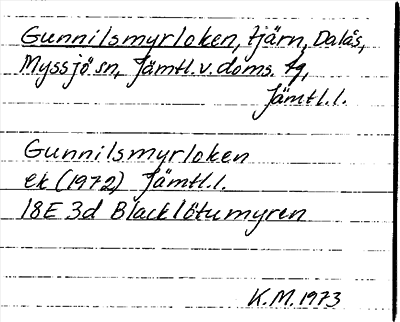 Gunnilsmyrloken, tjärn, Dalås,
Myssjö sn, Jämtl. v. doms. tg,
Jämtl. l.
Gunnilsmyrloken
ek (1972) Jämtl. l.
18E 3d Blacklötumyren
K.M. 1973